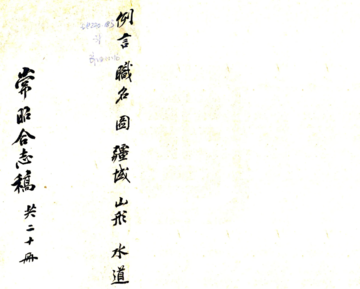 例言 職名 圖 疆域 山形 水道
常昭合志稿 共二十冊